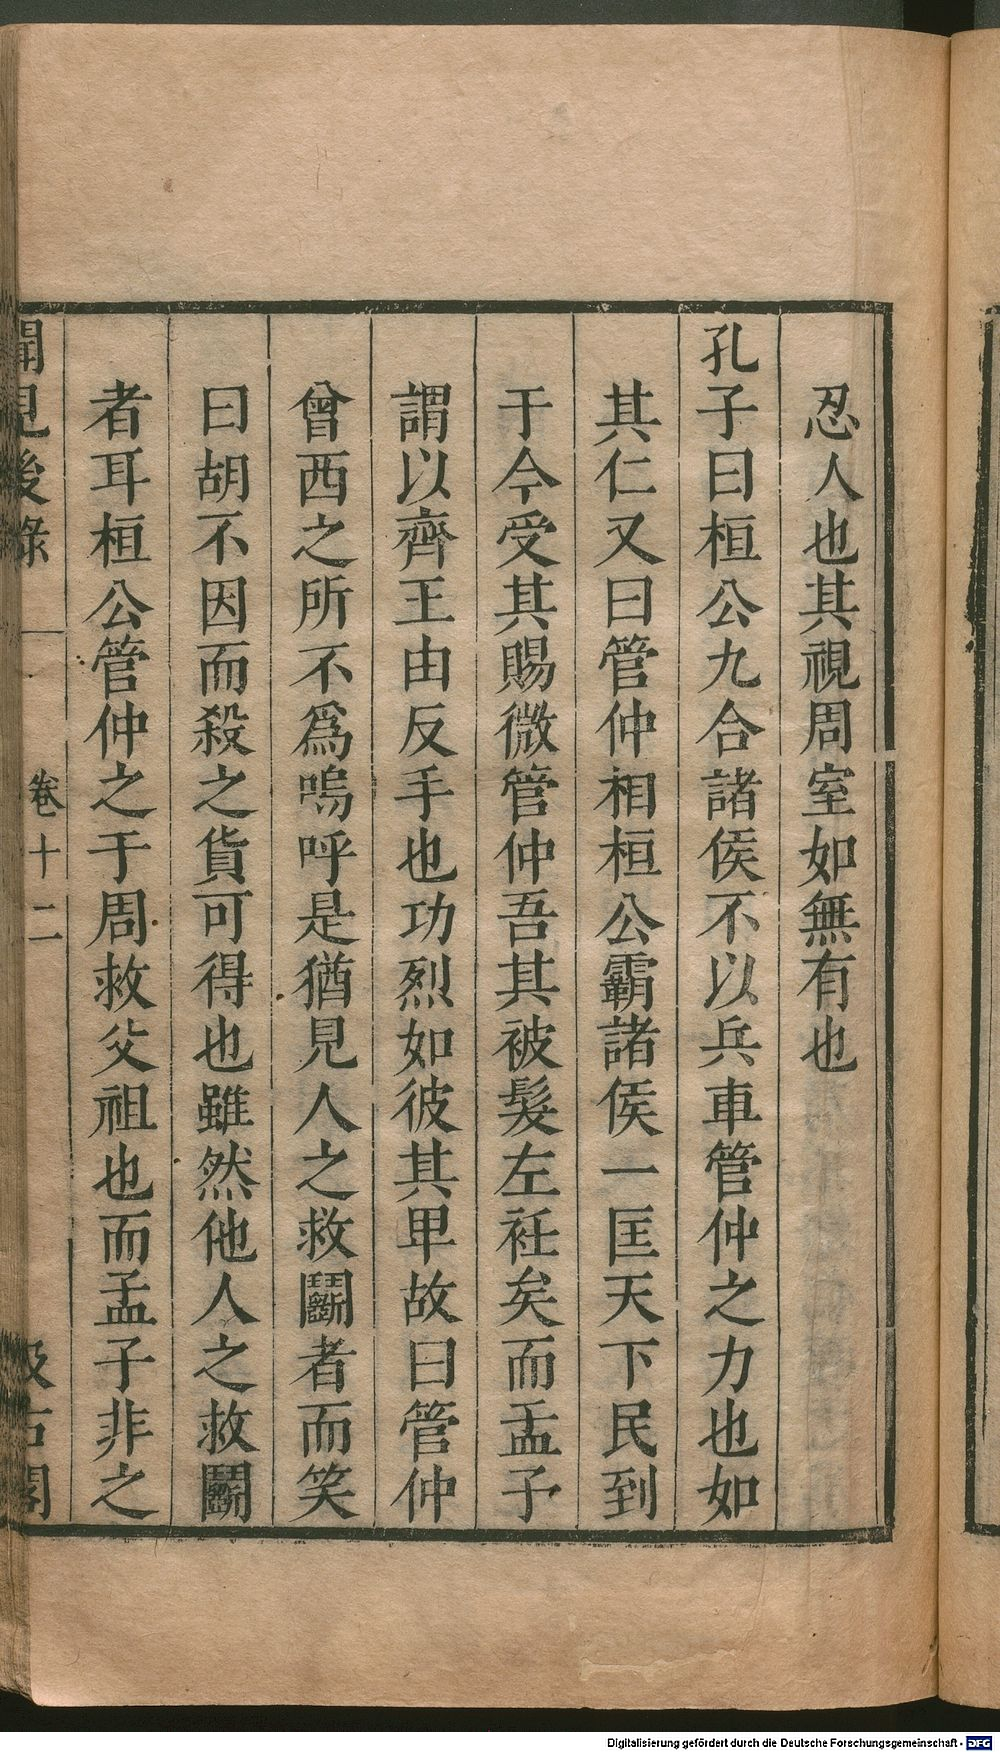 忍人也其視周室如無有也
孔子曰桓公九合諸侯不以兵車管仲之力也如
其仁又曰管仲相桓公霸諸侯一匡天下民到
于今受其賜微管仲吾其被髮左衽矣而孟子
謂以齊王由反手也功烈如彼其卑故曰管仲
曾西之所不爲嗚呼是猶見人之救鬭者而笑
曰胡不因而殺之貨可得也雖然他人之救鬭
者耳桓公管仲之于周救父祖也而孟子非之
聞見後錄 卷十二 汲古閣
Digitalisierung gefördert durch die Deutsche Forschungsgemeinschaft - DFG